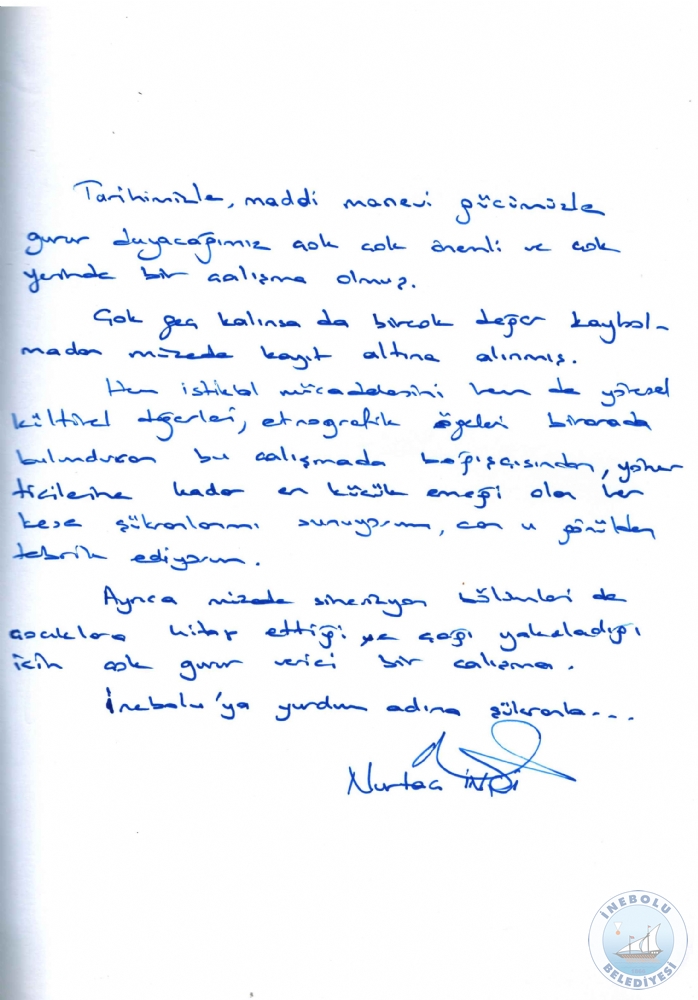 Tarihimizle, maddi manevi gücümüzle
gurur duyacağımız çok çok önemli ve çok
yerinde bir çalışma olmuş.
Çok geç kalınsa da birçok değer kaybol-
madan müzede kayıt altına alınmış.
Hem istiklal mücadelesini hem de yöresel
kültürel değerleri, etnografik ögeleri birarada
bulunduran bu çalışmada bağışçısından, yöne
ticilerine kadar en küçük emeği olan her
kese şükranlarımı sunuyorum, can u gönülden
tebrik ediyorum.
Ayrıca müzede sinevizyon bölümleri de
çocuklara hitap ettiği ve çağı yakaladığı
için çok gurur verici bir çalışma.
İnebolu'ya yurdum adına şükranla...
Nurtaç
İNEBOLU
BELEDİYESİ